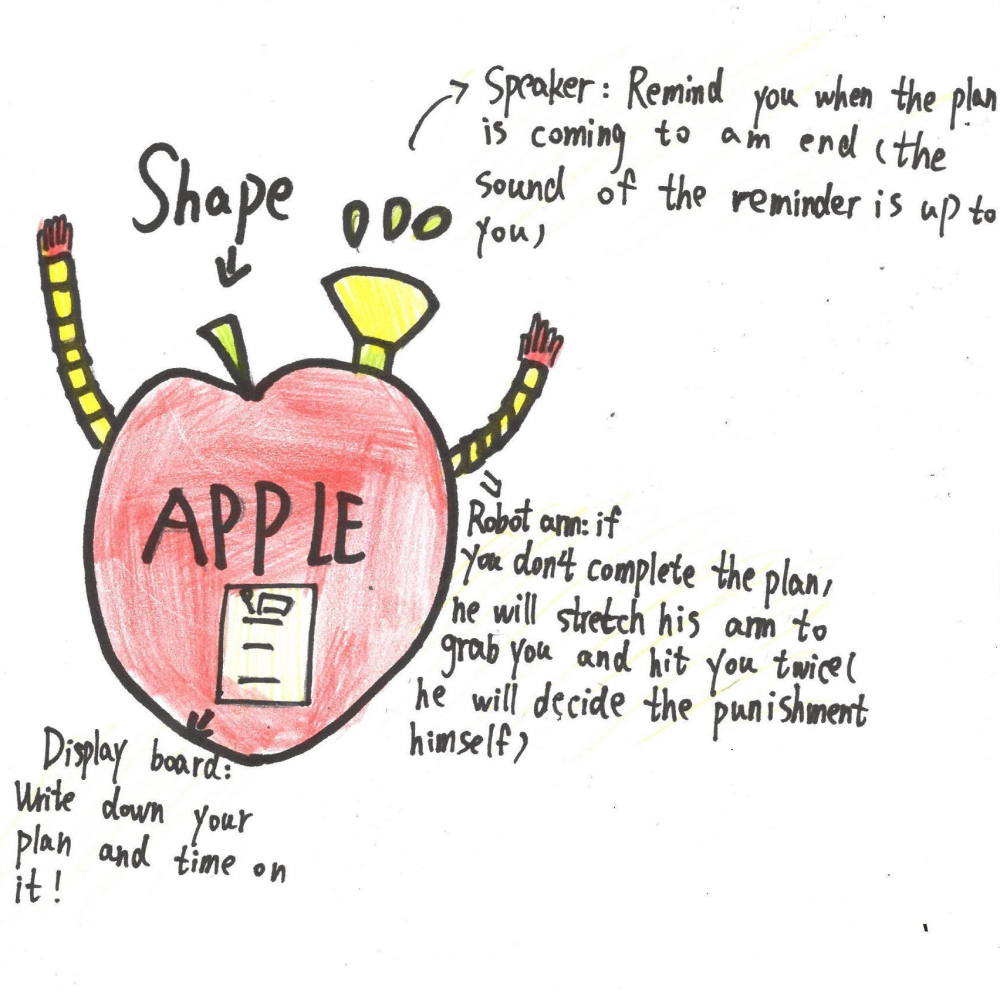 Speaker: Remind you when the plan
is coming to am end (the
sound of the reminder is up to
you)
Shape
APPLE
Robot arm: if
you don't complete the plan,
he will stretch his arm to
grab you and hit you twice(
he will decide the punishment
himself)
Display board:
Write down your
plan and time on
it!